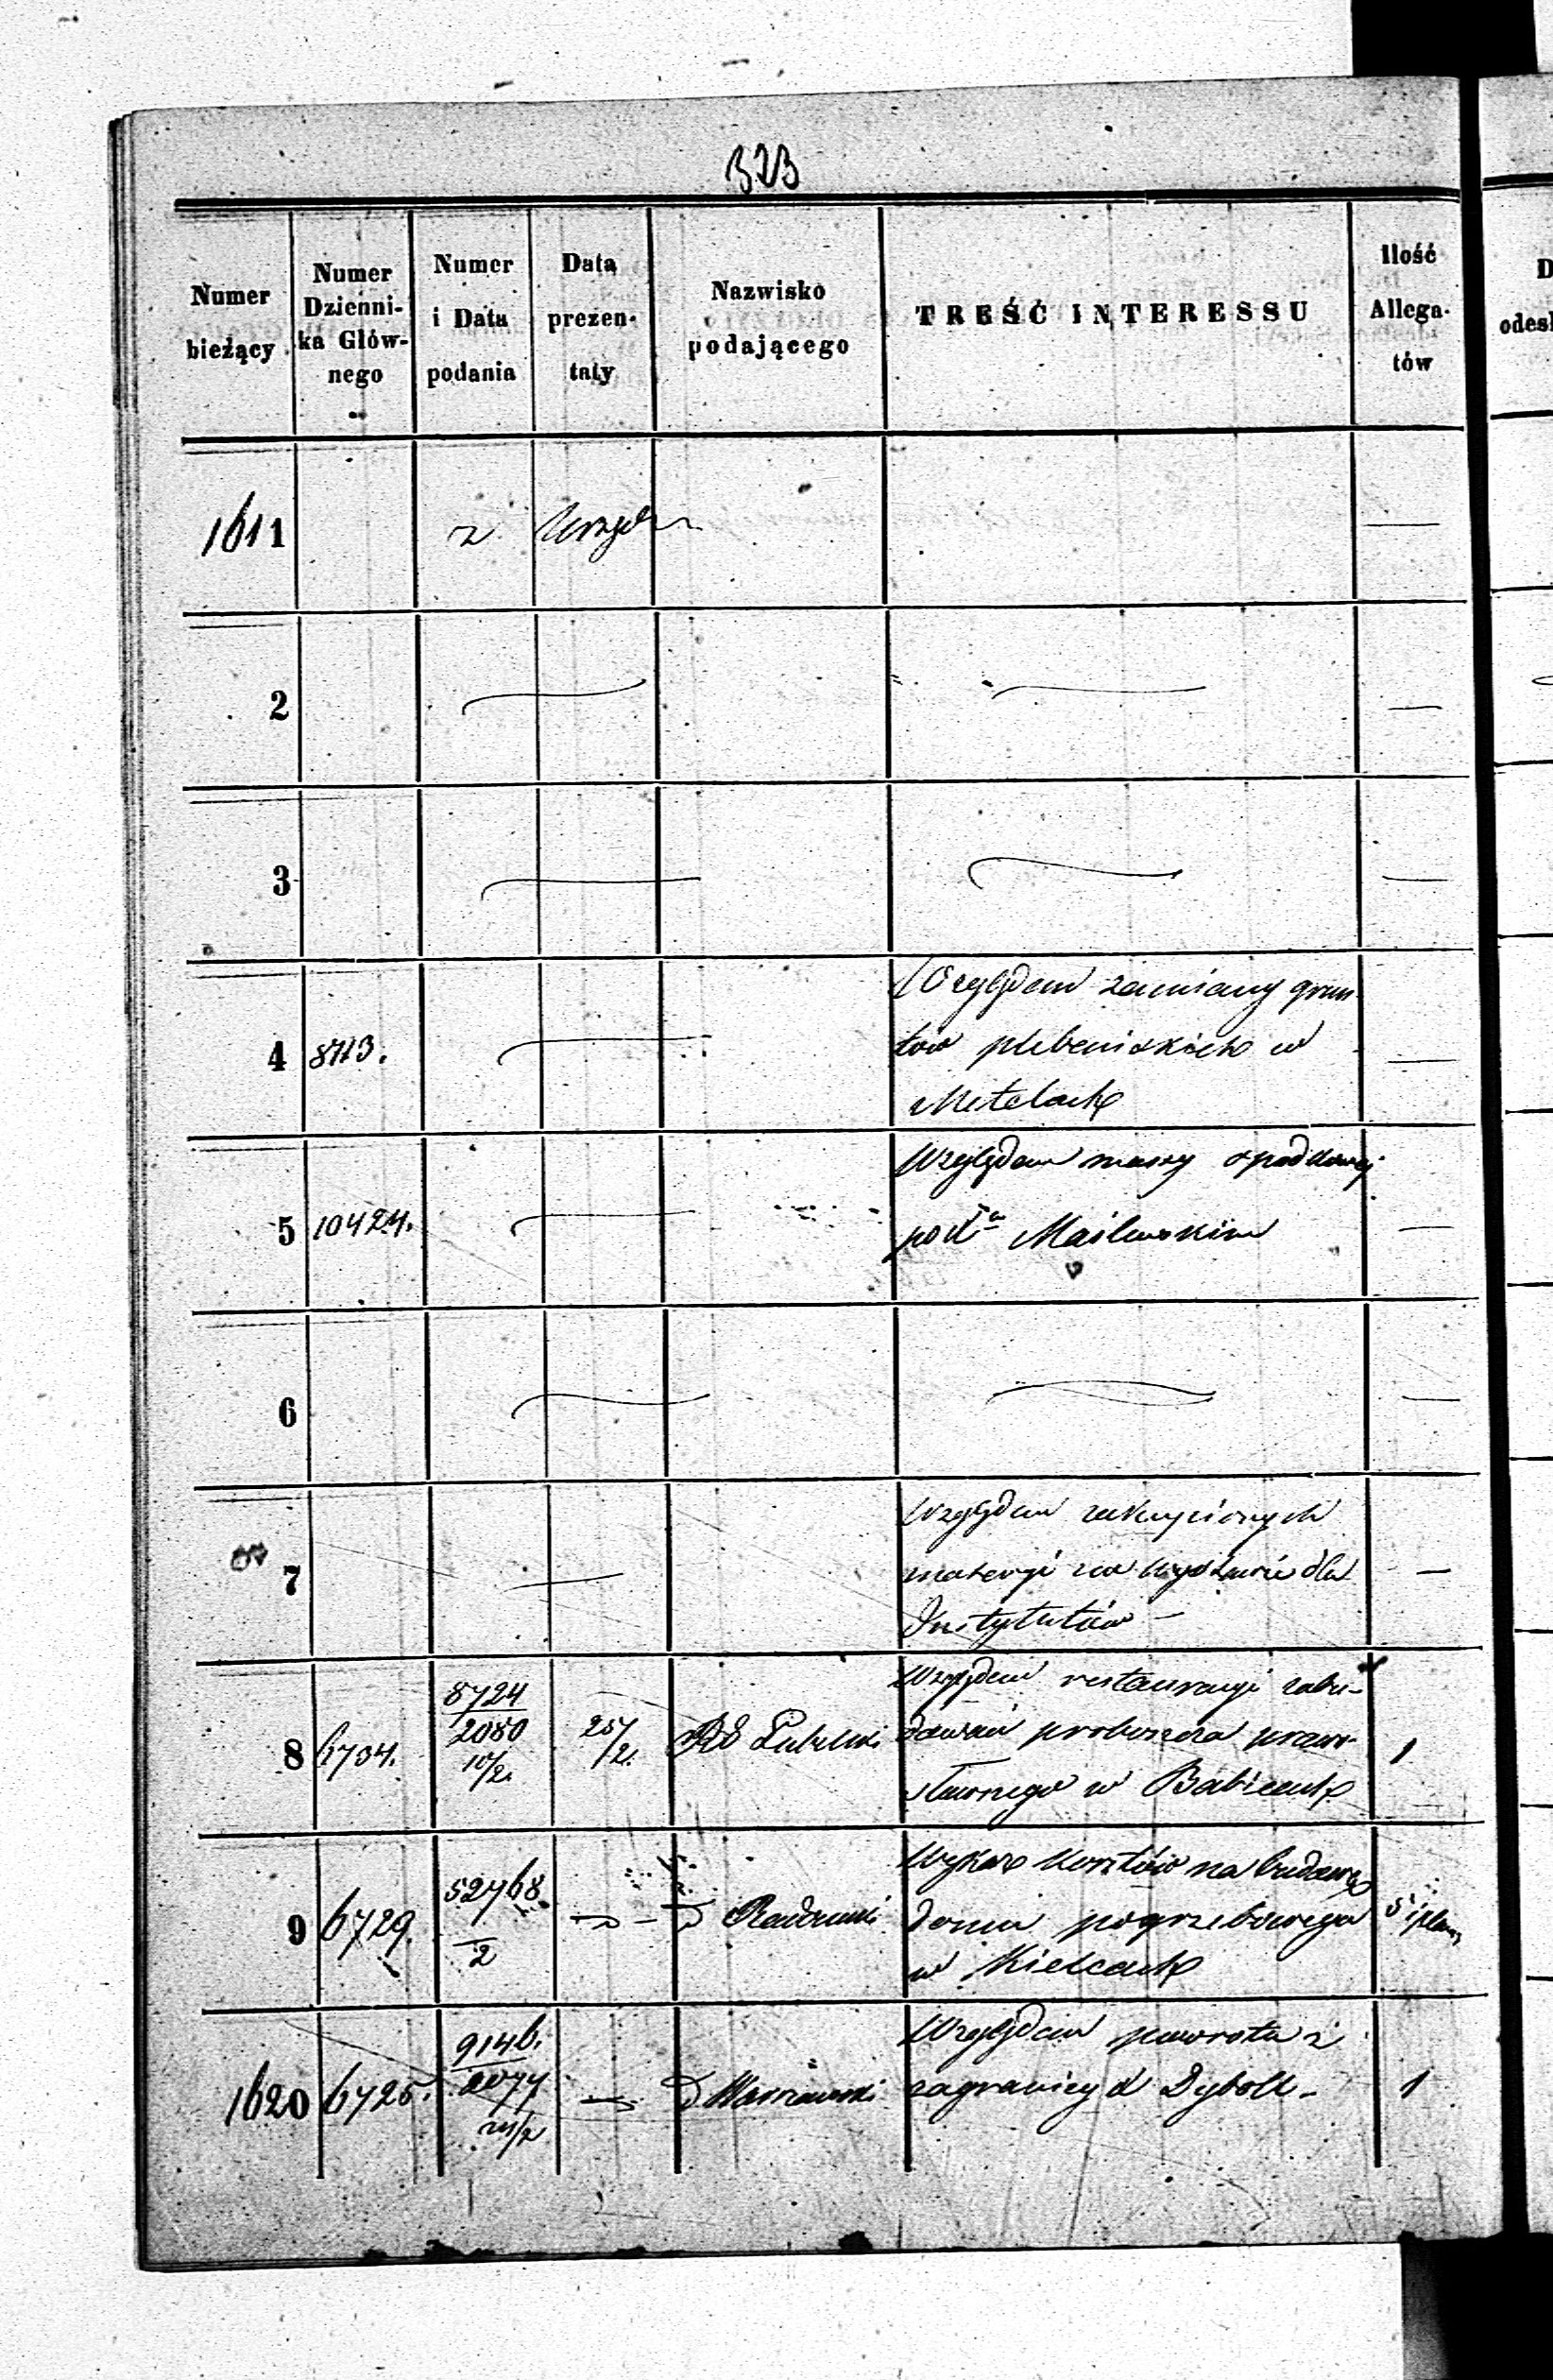 323
Numer
bieżący
Numer
Dzienni-
ka Głów-
nego
Numer
i Data
podania
Data
prezen-
taty
Nazwisko
podającego
TREŚĆ INTERESSU
Ilość
Allega-
tów
1611 z Urzędu —
2 —
3 —
4 8713. Względem zamiany grun
tów plebańskich w
—
5 10424. Względem massy spadkowej
po Maślewskim
—
6 —
7 Względem zakupionych
materyi na wystawie dla
Instytutów —
8 6704. 8724
2080
10/2. 25/2. RG Lubelski Względem restauracyi zabu-
dowań proboszcza prawo-
sławnego w Babicach
1
9 6729. 52768
/2 — D Radomski Wykaz kosztów na budowę
domu pogrzebowego
w Kielcach
5 i plany
1620 6725. 9146.
2077
21/2 — D Warszawski Względem powrotu z
zagranicy X Dyboll -
1
D
odesł